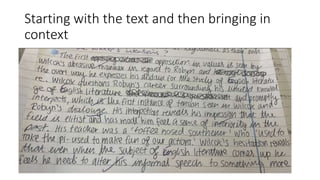 Starting with the text and then bringing in
context
The first opposition in values is seen by
Wilcox's abrasive manner in regard to Robyn and
the over way he expresses his distaste for the study of English literatu
re. Wilcox questions Robyn's career surrounding his limited knowled
ge of English literature and promptly
interjects, which is the first instance of tension seen in Wilcox and
Robyn's dialouge. His interjection reveals his impression that the
field is elitist and has made him feel a sense of inferiority in the
past. His teacher was a 'toffee nosed southener' who 'used to
take the pi- used to make fun of our accents'. Wilcox's hesitation reveals
that even when the subject of English literature comes up he
feels he needs to alter his informal speech to something more